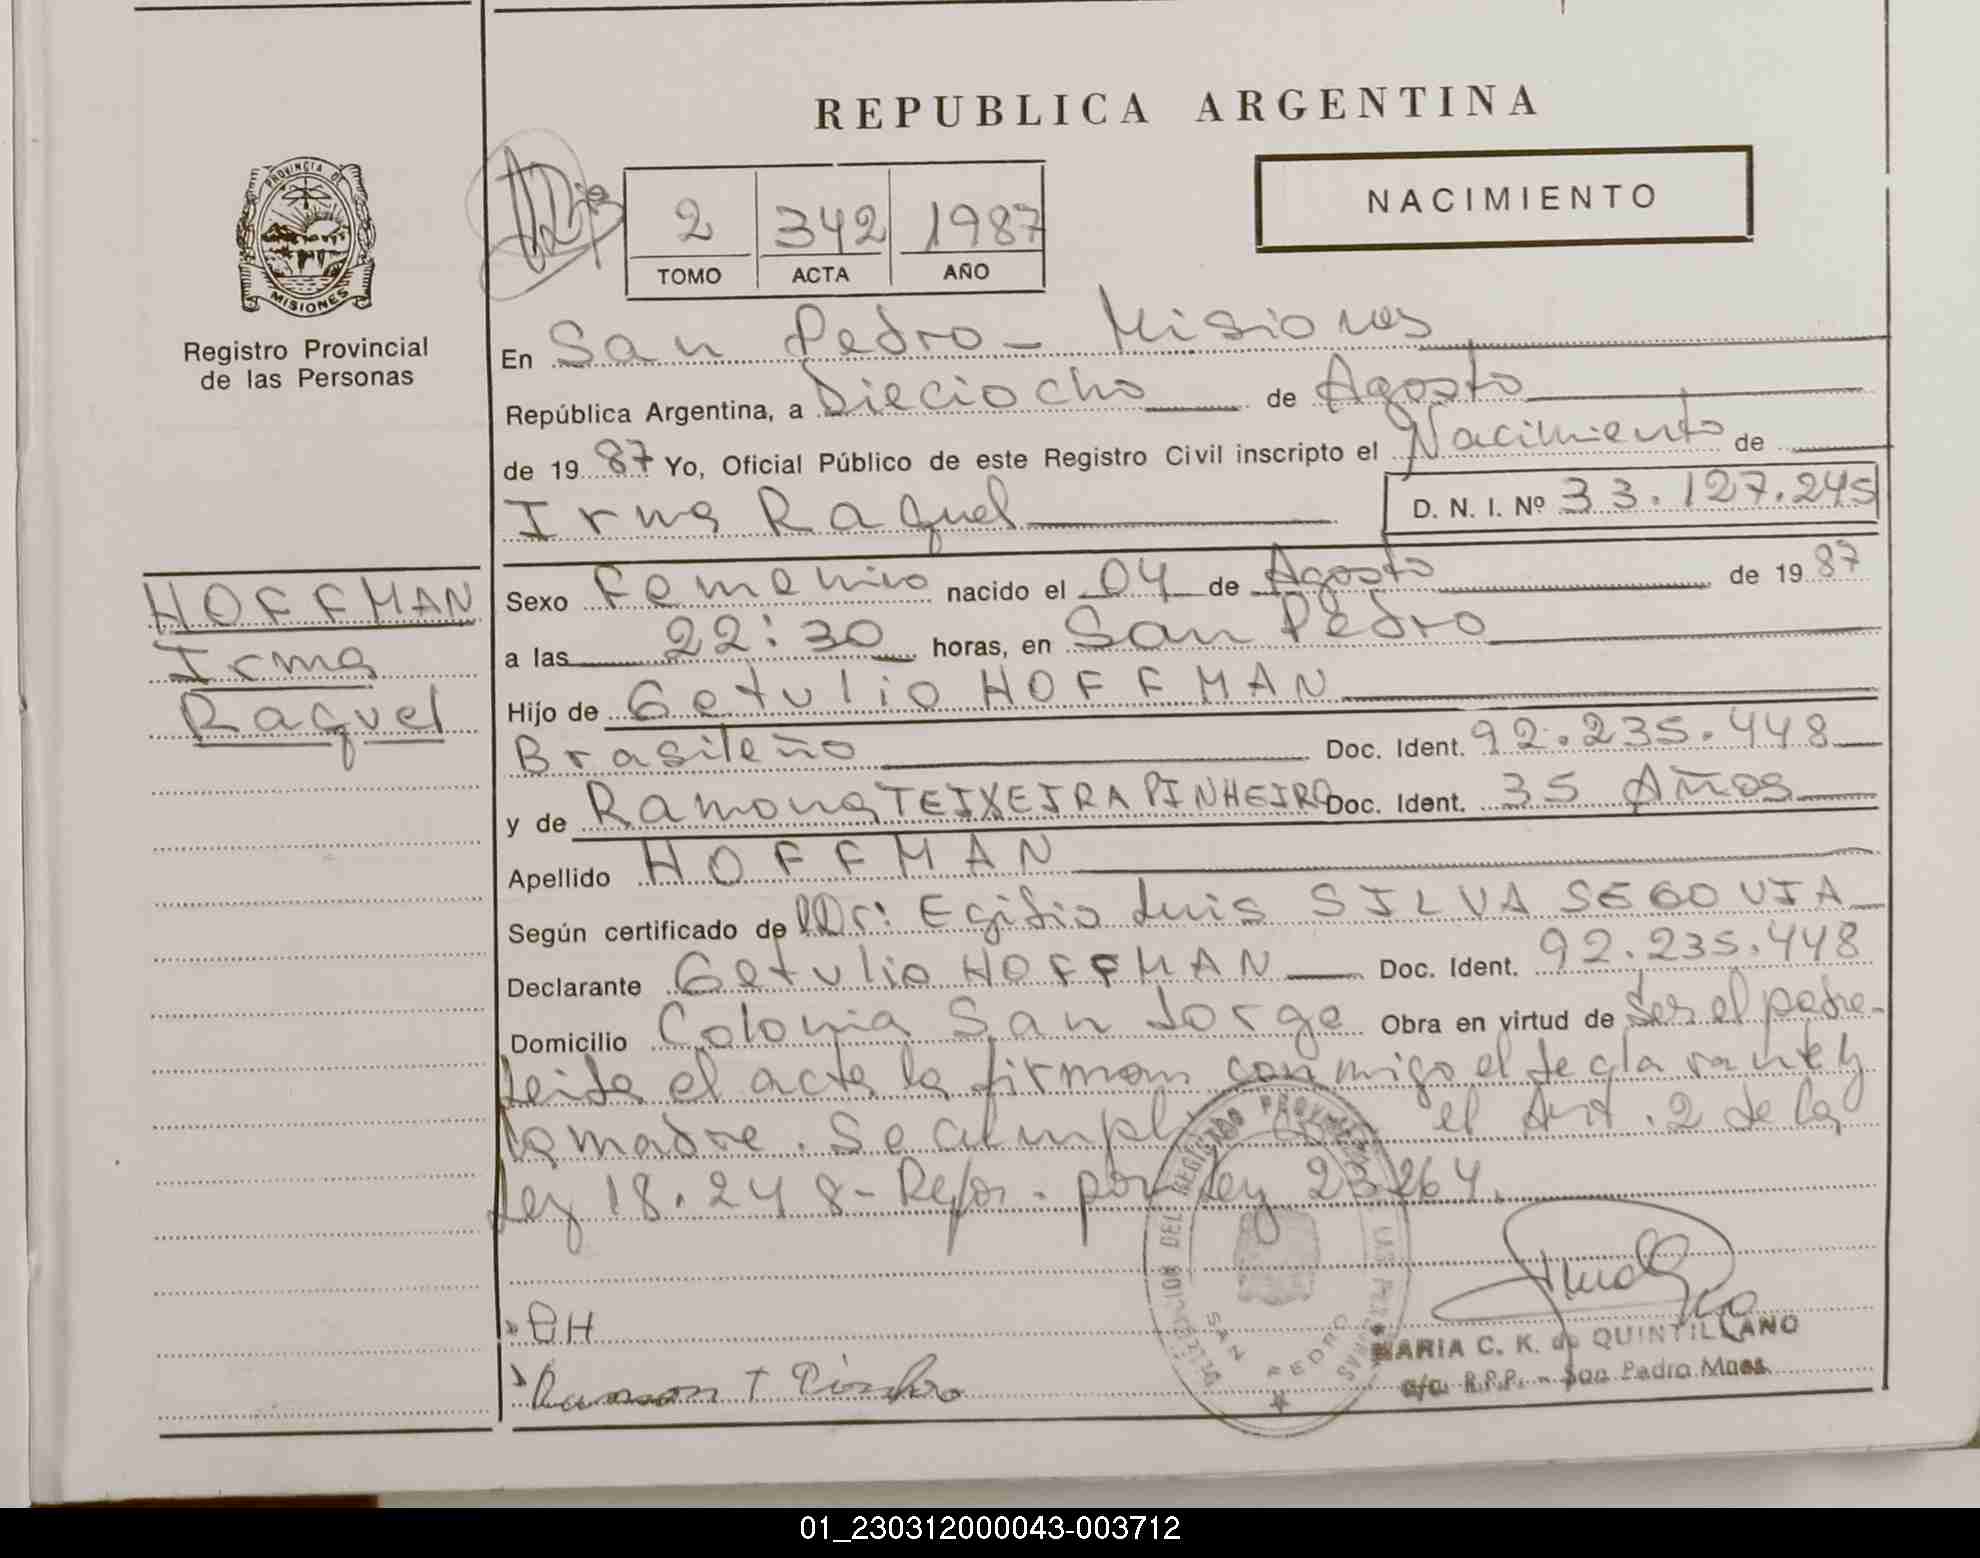 REPUBLICA ARGENTINA
NACIMIENTO
2 342 1987
TOMO ACTA AÑO
PROVINCIA DE
MISIONES
Registro Provincial
de las Personas
HOFFMAN
Irma
Raquel
En San Pedro - Misiones
República Argentina, a Dieciocho de Agosto
de 19 87 Yo, Oficial Público de este Registro Civil inscripto el Nacimiento de
Irma Raquel D. N. I. Nº 33.127.245
Sexo Femenino nacido el 04 de Agosto de 19 87
a las 22:30 horas, en San Pedro
Hijo de Getulio HOFFMAN
Brasileño Doc. Ident. 92.235.448
y de Ramona TEIXEIRA PINHEIRO Doc. Ident. 35 Años
Apellido HOFFMAN
Según certificado de Dr: Egidio Luis SILVA SEGOVIA
Declarante Getulio HOFFMAN Doc. Ident. 92.235.448
Domicilio Colonia San Jorge Obra en virtud de Ser el padre-
Leida el acta la firman conmigo el declarante y
la madre. Se cumpl el Art. 2 de la
Ley 18.248- Refor. por Ley 23264.
GH
SAN PEDRO
MARIA C. K. de QUINTILLANO
a/c. R.P.P. - San Pedro Mnes.
01_230312000043-003712